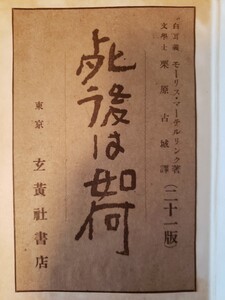 白耳義 モーリス・マーテルリンク著
文學士 栗原古城譯 (二十一版)
死後は如何
東京 玄黄社書店